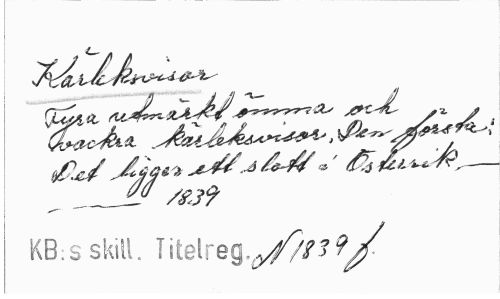 Kärleksvisor
Fyra utmärkt ömma och
vackra kärleksvisor. Den första:
Det ligger ett slott i Österrik —
—— 1839
KB:s skill. Titelreg. N 1839 f.